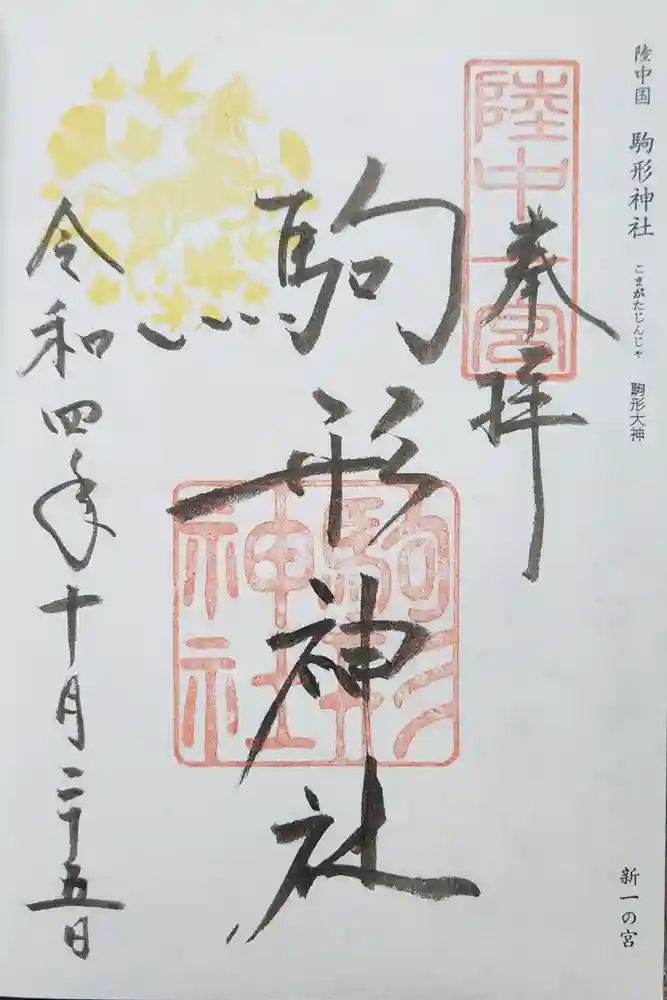 陸中国 駒形神社 こまがたじんじゃ 駒形大神
新一の宮
陸中一宮
奉拝
駒形神社
駒形
神社
令和四年十月二十五日